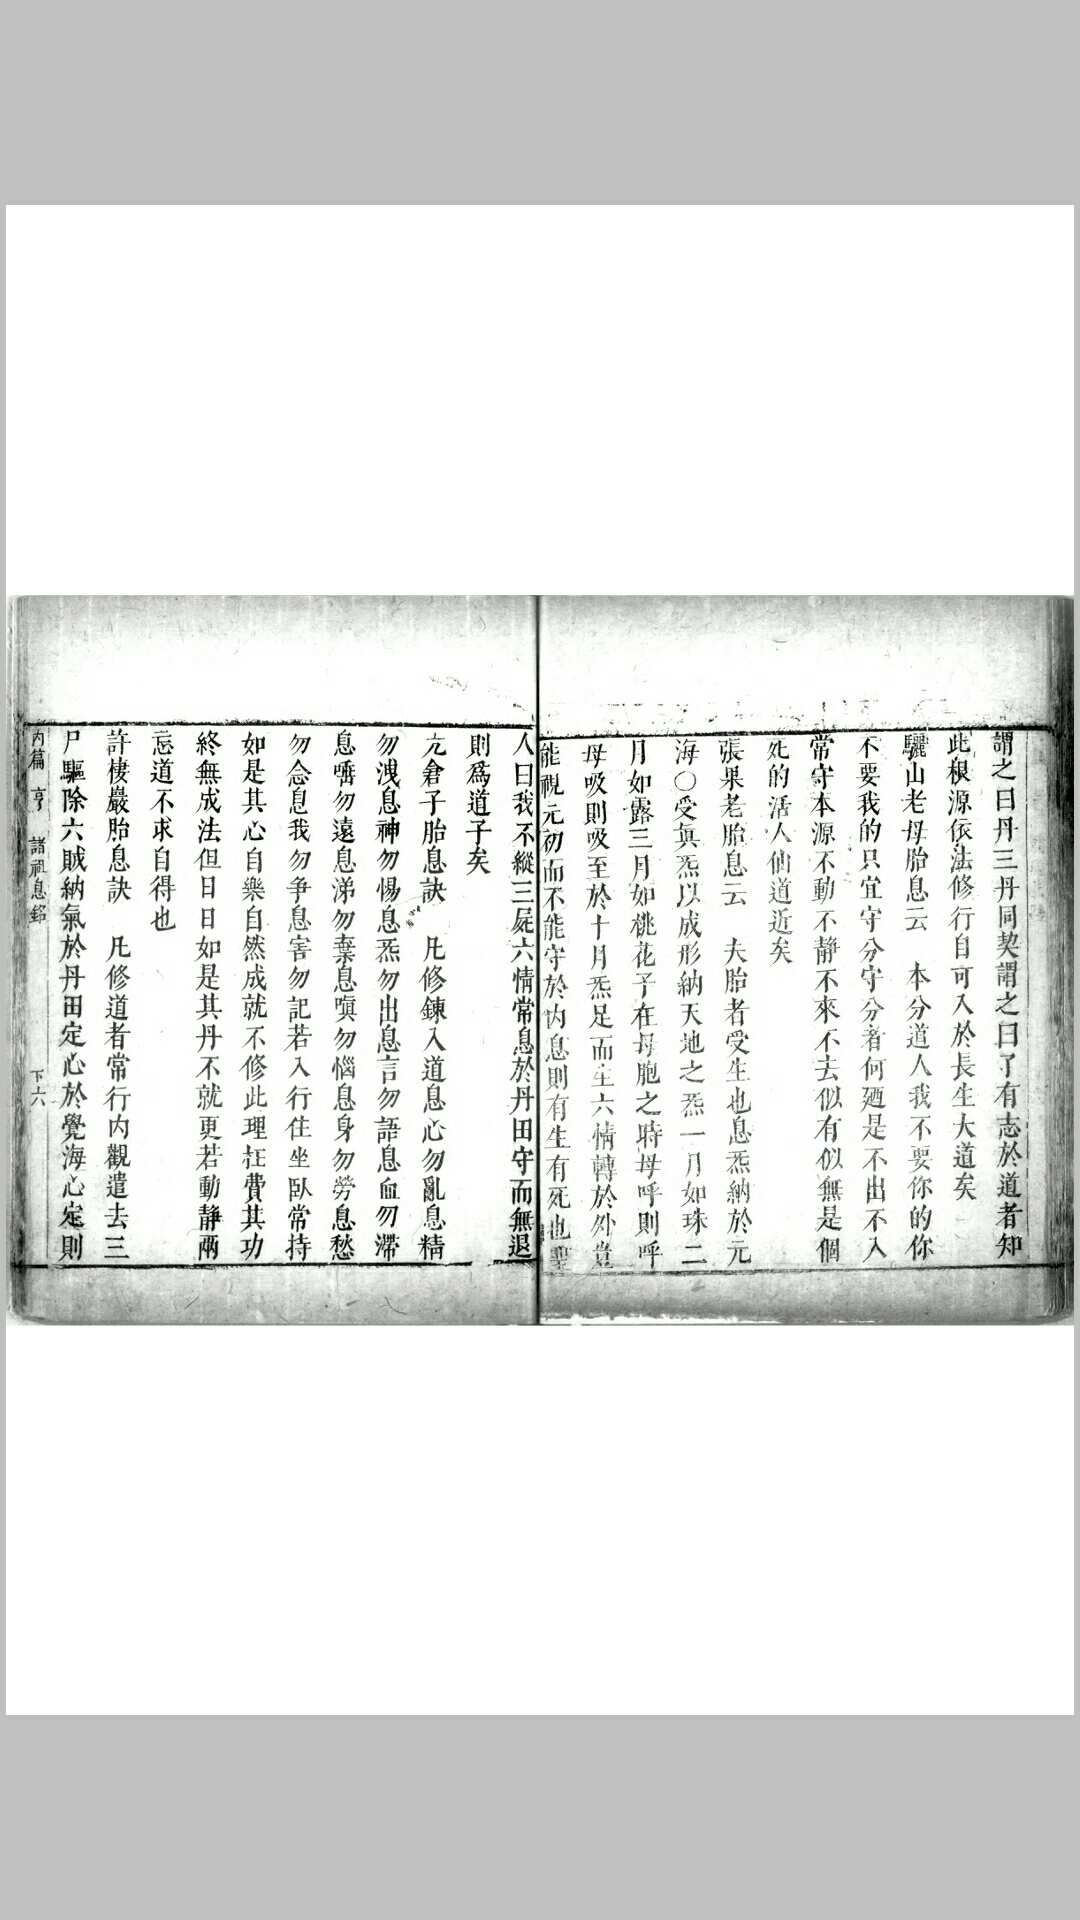 謂之曰丹三丹同契謂之曰了有志於道者知
此根源依法修行自可入於長生大道矣
驪山老母胎息云　本分道人我不要你的你
不要我的只宜守分守分著何廼是不出不入
常守本源不動不靜不來不去似有似無是個
死的活人仙道近矣
張果老胎息云　夫胎者受生也息炁納於元
海〇受真炁以成形納天地之炁一月如珠二
月如露三月如桃花子在母胞之時母呼則呼
母吸則吸至於十月炁足而生六情轉於外豈
能視元初而不能守於內息則有生有死也聖
人曰我不縱三屍六情常息於丹田守而無退
則爲道子矣
元倉子胎息訣　凡修鍊入道息心勿亂息精
勿洩息神勿惕息炁勿出息言勿語息血勿滯
息嚌勿遠息涕勿棄息嗔勿惱息身勿勞息愁
勿念息我勿爭息害勿記若入行住坐臥常持
如是其心自樂自然成就不修此理枉費其功
終無成法但日日如是其丹不就更若動靜兩
忘道不求自得也
許棲巖胎息訣　凡修道者常行內觀遣去三
尸驅除六賊納氣於丹田定心於覺海心定則
內篇　亨　諸祖息銘　下六